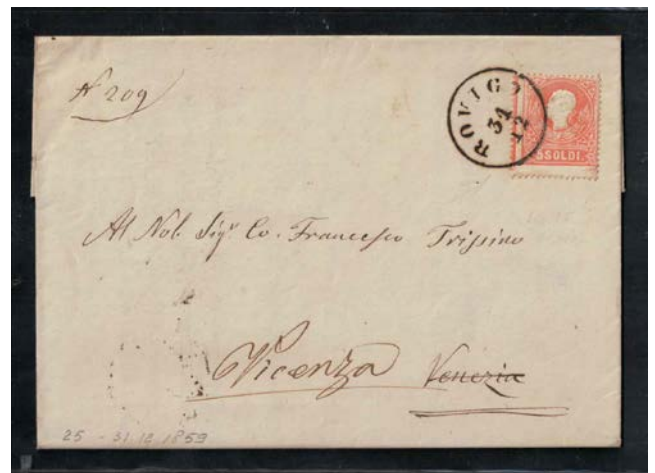 N 209
ROVIGO
31
12
5 SOLDI
Al Nob. Sigr Co. Francesco Trissino
Vicenza Venezia
25 - 31.12.1859